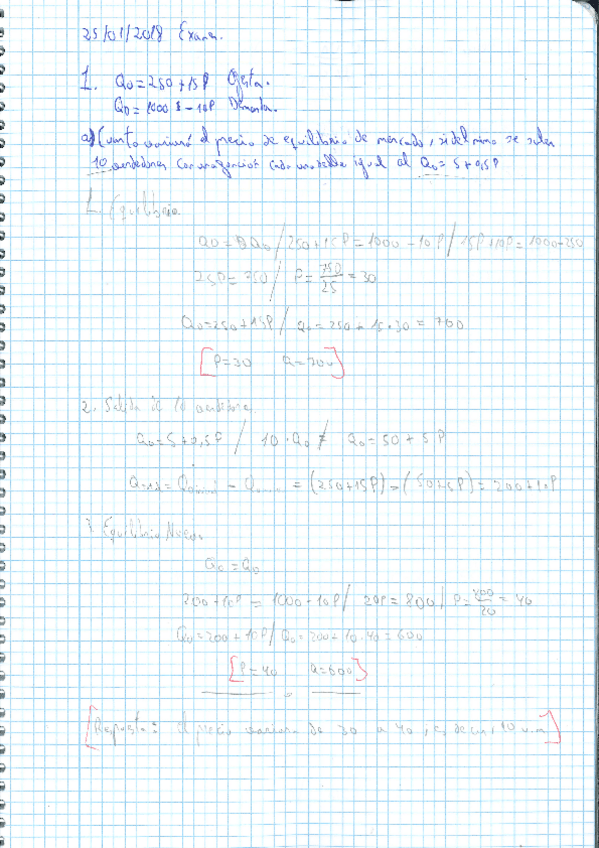 25/01/2018 Examen.
1. Qo = 250 + 15P Oferta.
QD = 1000 - 10P Demanda.
a) Cuanto variará el precio de equilibrio de mercado, si del mismo se salen
10 vendedores con una función cada uno de ellos igual al Qo = 5 + 0,5P
1. Equilibrio
250 + 15P = 1000 - 10P / 15P + 10P = 1000 - 250
25P = 750 / P = 750/25 = 30
Qo = 250 + 15P / Qo = 250 + 15·30 = 700
[P = 30 Q = 700]
2. Salida de 10 vendedores
Qo = 5 + 0,5P / 10·Qo Qo = 50 + 5P
= (250 + 15P) - (50 + 5P) = 200 + 10P
3. Equilibrio Nuevo
Qo = QD
200 + 10P = 1000 - 10P / 20P = 800 / P = 800/20 = 40
Qo = 200 + 10P / Qo = 200 + 10·40 = 600
[P = 40 Q = 600]
[Respuesta: el precio variara de 30 a 40, es decir, 10 u.m]